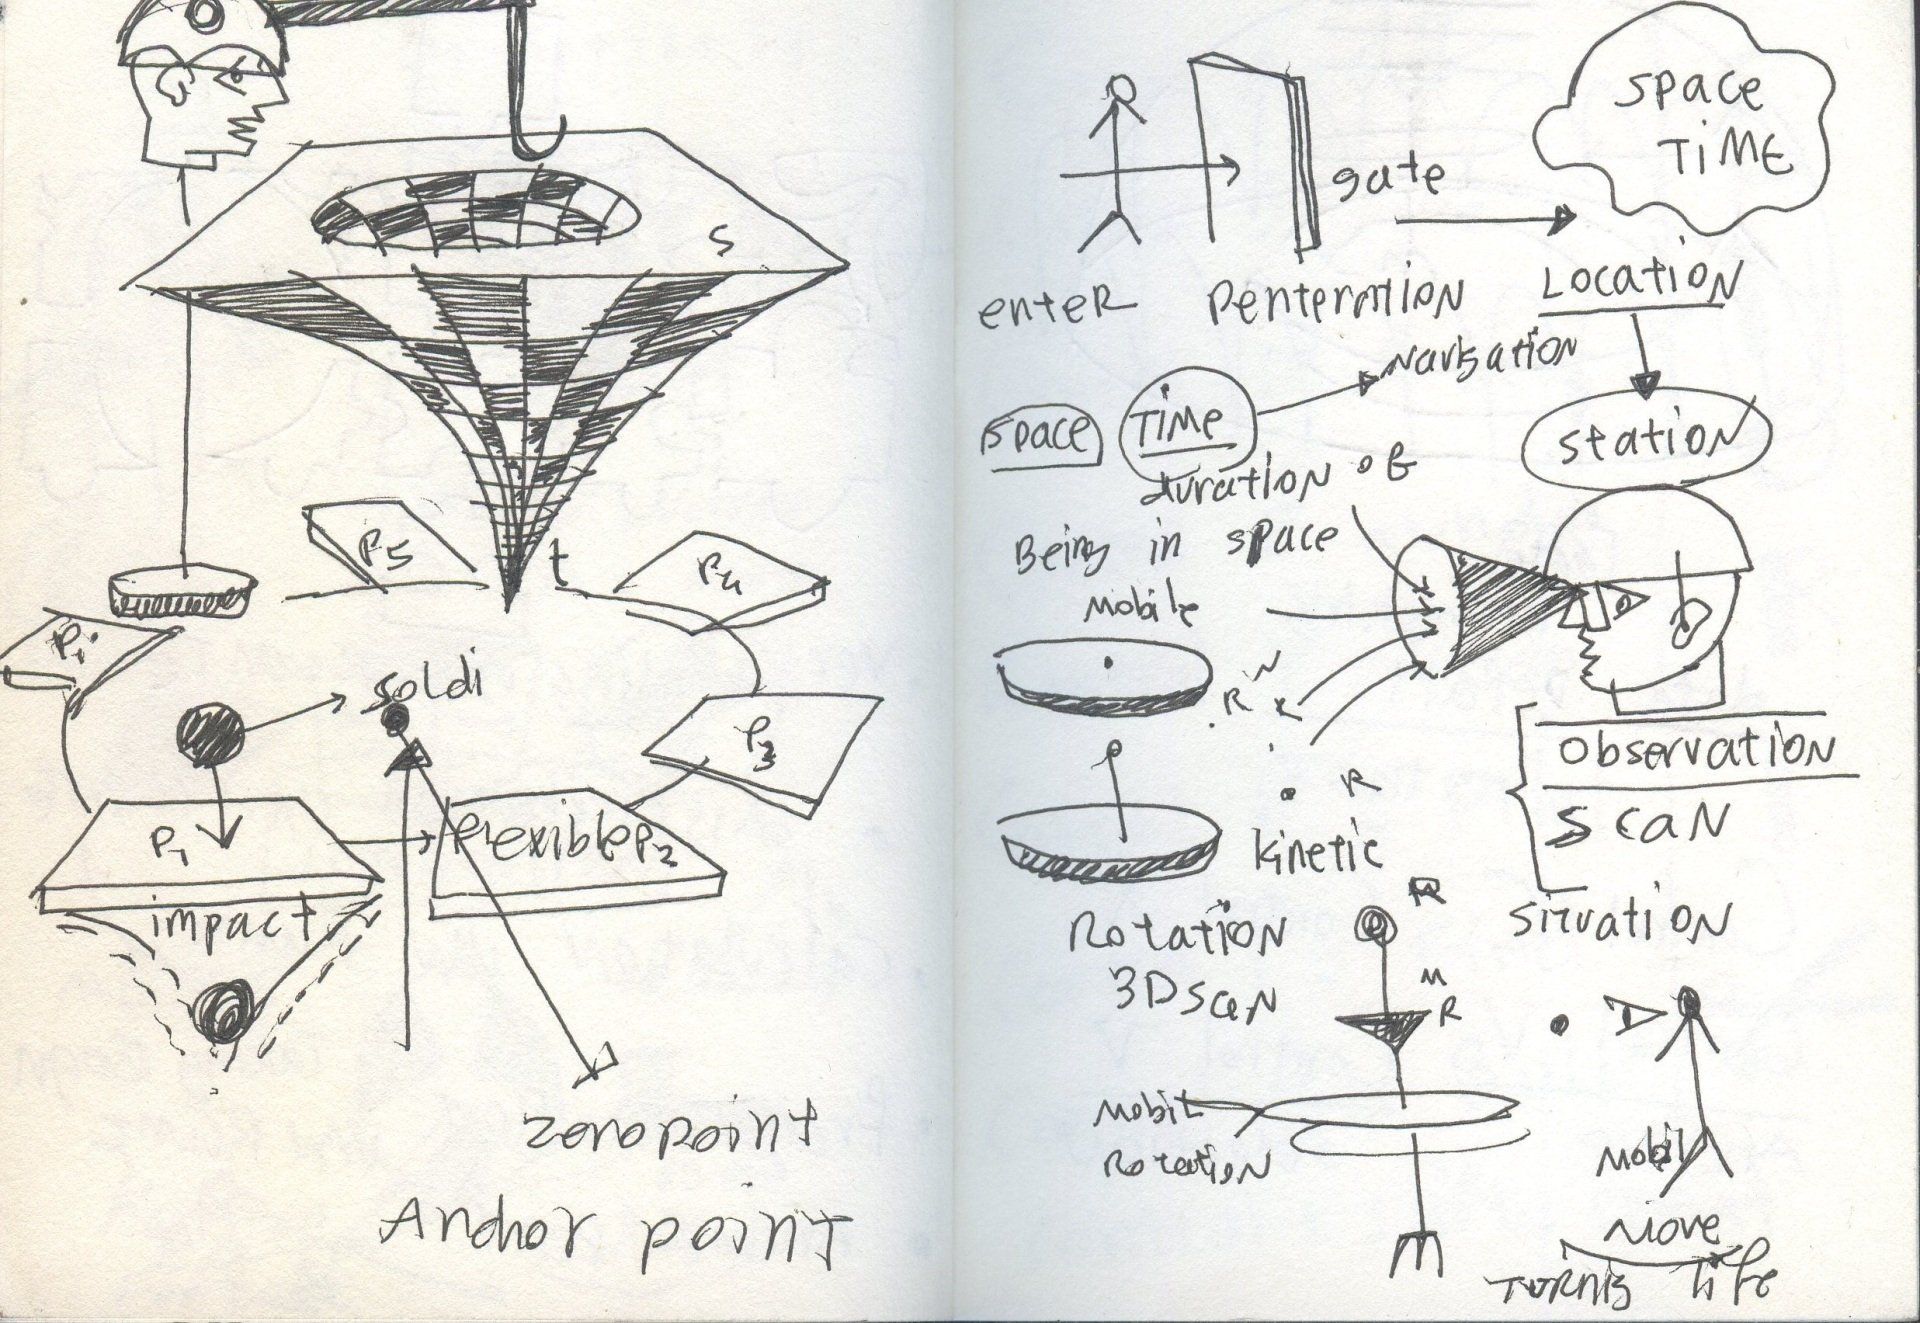 S
t
P5
P4
Pi
soldi
P3
P1
Flexible P2
impact
zeropoint
Anchor point
space
TiME
gate
enteR
penteration
Location
Navigation
space
Time
station
duration of
Being in space
Mobile
R
R
Observation
scan
kinetic
R
Rotation
3D scan
situation
M
R
Mobil
Rotation
Mobil
Move
Turnig life